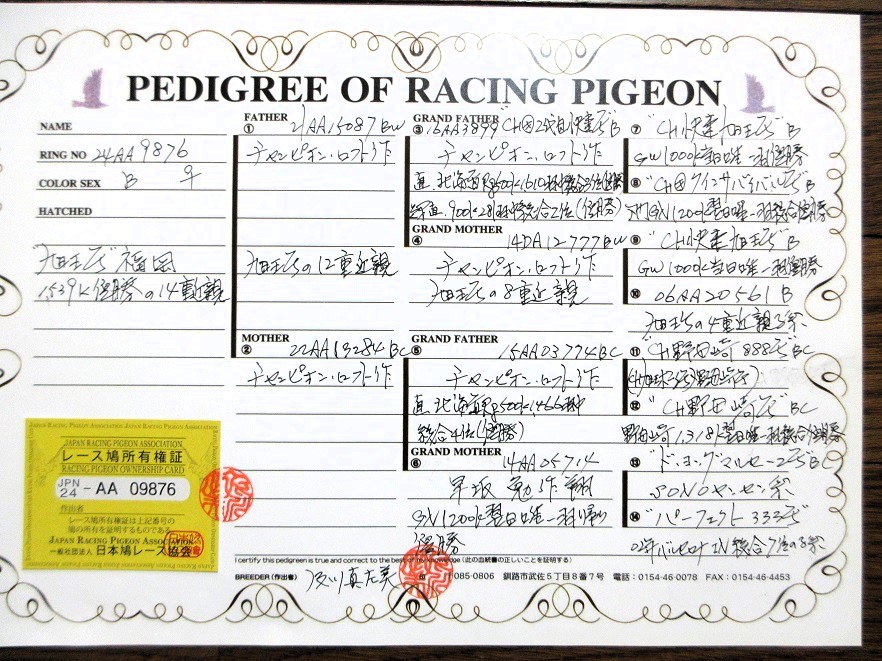 PEDIGREE OF RACING PIGEON
NAME
RING NO 24AA9876
COLOR SEX B ♀
HATCHED
"旭王号" 福岡
1,539K優勝の14重近親
FATHER
① 21AA15087 BW
チャンピオン・ロフト作
旭王号の12重近親
MOTHER
② 22AA13284 BC
チャンピオン・ロフト作
GRAND FATHER
③ 16AA3899 CH
チャンピオン・ロフト作
GRAND MOTHER
④ 14DA12777 BW
チャンピオン・ロフト作
旭王号の8重近親
GRAND FATHER
⑤ 15AA03774 BC
チャンピオン・ロフト作
総合4位(優勝)
GRAND MOTHER
⑥ 14AA05714
早坂 勉 作翔
GN1200K翌日唯一羽帰り
優勝
⑦ "CH快速旭王号" B
GW1000K当日唯一羽優勝
⑧ "CH ツインサバイバル号" B
GN1200K翌日唯一羽総合優勝
⑨ "CH快速旭王号" B
GW1000K当日唯一羽優勝
⑩ 06AA20561 B
旭王号の4重近親
⑪ "CH野田崎888号" BC
⑫ "CH野田崎号" BC
野田崎1,318K翌日唯一羽総合優勝
⑬ "ド・ヨングマルセーユ号" BC
SONOヤンセン系
⑭ "パーフェクト333号"
JAPAN RACING PIGEON ASSOCIATION
レース鳩所有権証
RACING PIGEON OWNERSHIP CARD
JPN
24 - AA 09876
作出者
レース鳩所有権証は上記番号の
鳩の所有を証明するものである。
JAPAN RACING PIGEON ASSOCIATION
一般社団法人 日本鳩レース協会
I certify this pedigreen is true and correct to the best of my knowledge (此の血統書の正しいことを証明する)
BREEDER (作出者) 印 〒085-0806 釧路市武佐5丁目8番7号 電話:0154-46-0078 FAX:0154-46-4453